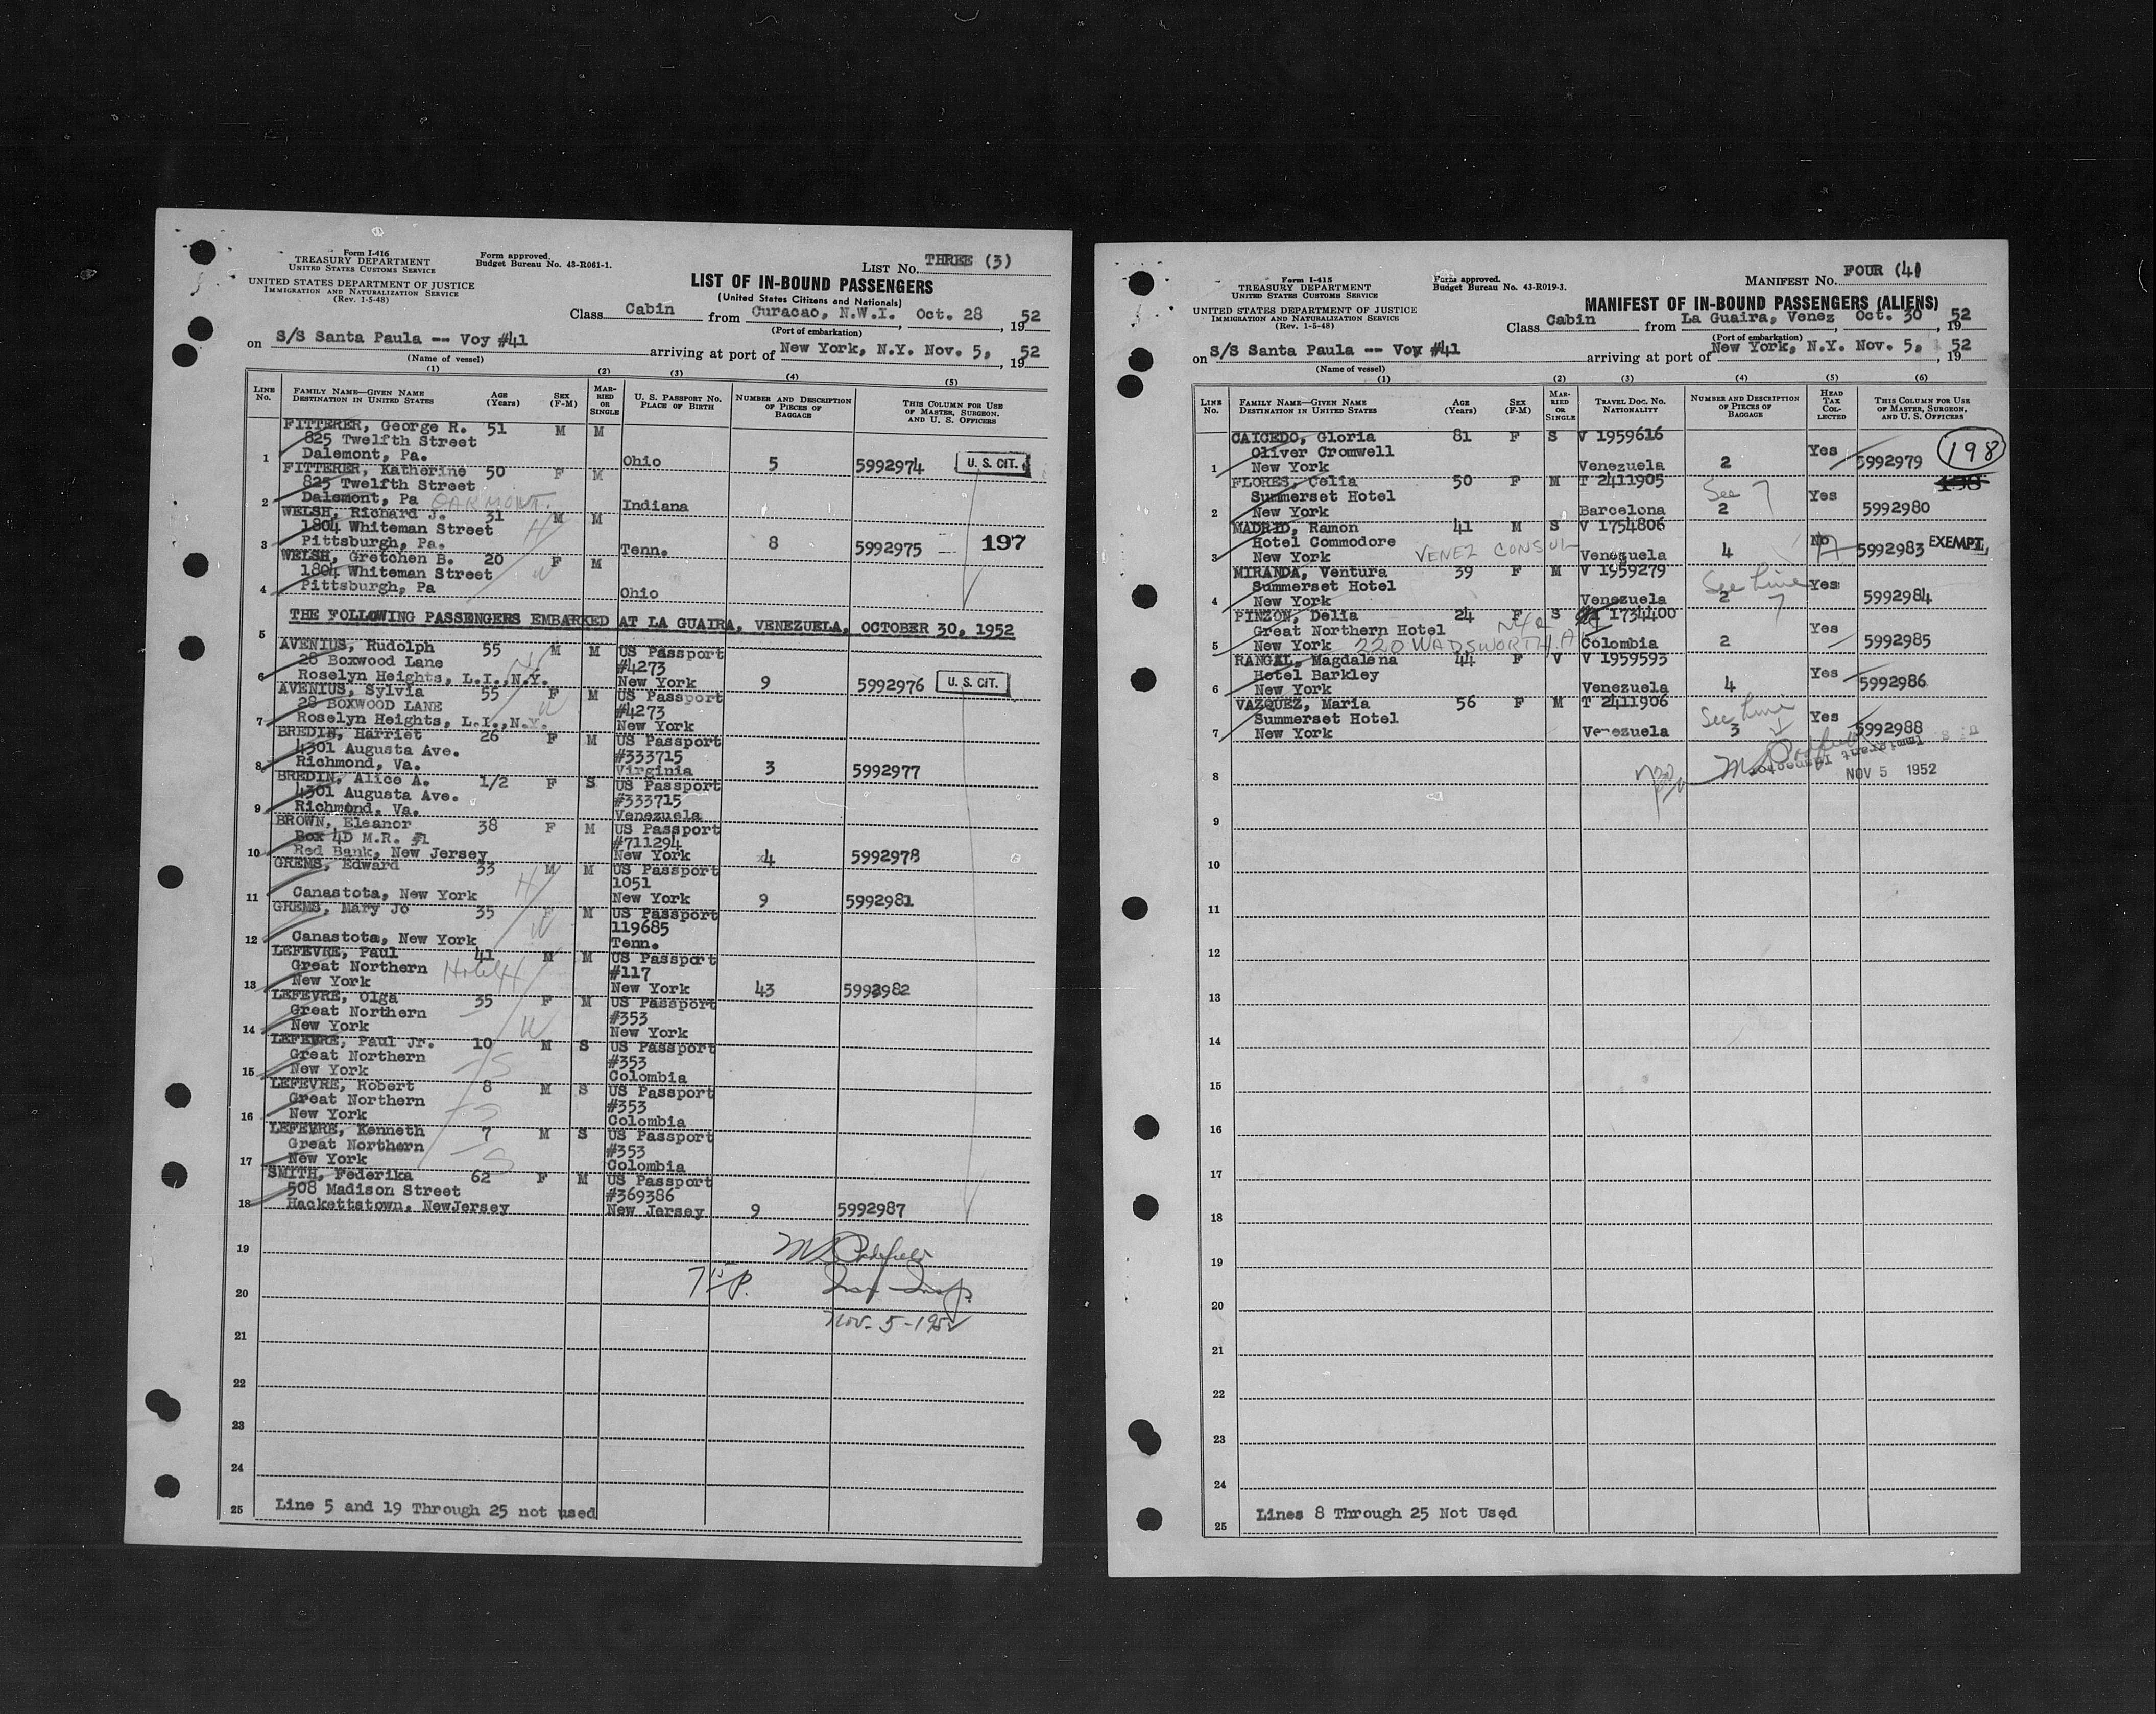 Form I-416
TREASURY DEPARTMENT
UNITED STATES CUSTOMS SERVICE
UNITED STATES DEPARTMENT OF JUSTICE
IMMIGRATION AND NATURALIZATION SERVICE
(Rev. 1-5-48)
Form approved.
Budget Bureau No. 43-R061-1.
LIST NO. THREE (3)
LIST OF IN-BOUND PASSENGERS
(United States Citizens and Nationals)
Class Cabin from Curacao, N.W.I. Oct. 28, 1952
(Port of embarkation)
on S/S Santa Paula -- Voy #41 arriving at port of New York, N.Y. Nov. 5, 1952
(Name of vessel)
(1) (2) (3) (4) (5)
LINE No. FAMILY NAME—GIVEN NAME DESTINATION IN UNITED STATES AGE (Years) SEX (F-M) MARRIED OR SINGLE U. S. PASSPORT NO. PLACE OF BIRTH NUMBER AND DESCRIPTION OF PIECES OF BAGGAGE THIS COLUMN FOR USE OF MASTER, SURGEON, AND U. S. OFFICERS
FITTERER, George R. 51 M M
825 Twelfth Street
1 Dalemont, Pa. Ohio 5 5992974 U. S. CIT.
FITTERER, Katherine 50 F M
825 Twelfth Street
2 Dalemont, Pa OAKMONT. Indiana
WELSH, Richard J. 31 M M
1804 Whiteman Street H
3 Pittsburgh, Pa. Tenn. 8 5992975 197
WELSH, Gretchen B. 20 F M
1804 Whiteman Street W
4 Pittsburgh, Pa Ohio
5 THE FOLLOWING PASSENGERS EMBARKED AT LA GUAIRA, VENEZUELA, OCTOBER 30, 1952
AVENIUS, Rudolph 55 M M US Passport
28 Boxwood Lane H #4273
6 Roselyn Heights, L.I.,N.Y. New York 9 5992976 U. S. CIT.
AVENIUS, Sylvia 55 F M US Passport
28 BOXWOOD LANE W #4273
7 Roselyn Heights, L.I.,N.Y. New York
BREDIN, Harriet 26 F M US Passport
4301 Augusta Ave. #333715
8 Richmond, Va. Virginia 3 5992977
BREDIN, Alice A. 1/2 F S US Passport
4301 Augusta Ave. #333715
9 Richmond, Va. Venezuela
BROWN, Eleanor 38 F M US Passport
Box 4D M.R. #1 #711294
10 Red Bank, New Jersey New York 4 5992978
GREMS, Edward 33 M M US Passport
H 1051
11 Canastota, New York New York 9 5992981
GREMS, Mary Jo 35 F M US Passport
W 119685
12 Canastota, New York Tenn.
LEFEVRE, Paul 41 M M US Passport
Great Northern Hotel H #117
13 New York New York 43 5992982
LEFEVRE, Olga 35 F M US Passport
Great Northern #353
14 New York W New York
LEFEVRE, Paul Jr. 10 M S US Passport
Great Northern S #353
15 New York Colombia
LEFEVRE, Robert 8 M S US Passport
Great Northern #353
16 New York S Colombia
LEFEVRE, Kenneth 7 M S US Passport
Great Northern S #353
17 New York Colombia
SMITH, Federika 62 F M US Passport
508 Madison Street #369386
18 Hackettstown, NewJersey New Jersey 9 5992987
19
20
Nov. 5-1952
21
22
23
24
25 Line 5 and 19 Through 25 not used
Form I-415
TREASURY DEPARTMENT
UNITED STATES CUSTOMS SERVICE
UNITED STATES DEPARTMENT OF JUSTICE
IMMIGRATION AND NATURALIZATION SERVICE
(Rev. 1-5-48)
Form approved.
Budget Bureau No. 43-R019-3.
MANIFEST NO. FOUR (4)
MANIFEST OF IN-BOUND PASSENGERS (ALIENS)
Class Cabin from La Guaira, Venez Oct. 30, 1952
(Port of embarkation)
on S/S Santa Paula -- Voy #41 arriving at port of New York, N.Y. Nov. 5, 1952
(Name of vessel)
(1) (2) (3) (4) (5) (6)
LINE No. FAMILY NAME—GIVEN NAME DESTINATION IN UNITED STATES AGE (Years) SEX (F-M) MARRIED OR SINGLE TRAVEL DOC. NO. NATIONALITY NUMBER AND DESCRIPTION OF PIECES OF BAGGAGE HEAD TAX COLLECTED THIS COLUMN FOR USE OF MASTER, SURGEON, AND U. S. OFFICERS
CAICEDO, Gloria 81 F S V 1959616
Oliver Cromwell Yes 198
1 New York Venezuela 2 5992979
FLORES, Celia 50 F M T 2411905 198
Summerset Hotel See 7 Yes
2 New York Barcelona 2 5992980
MADRID, Ramon 41 M S V 1754806
Hotel Commodore No
3 New York VENEZ CONSUL Venezuela 4 5992983 EXEMPT
MIRANDA, Ventura 39 F M V 1959279
Summerset Hotel See Line 7 Yes
4 New York Venezuela 2 5992984
PINZON, Delia 24 F S 1734400
Great Northern Hotel Yes
5 New York 220 WADSWORTH. A Colombia 2 5992985
RANGAL, Magdalena 44 F V V 1959593
Hotel Barkley Yes
6 New York Venezuela 4 5992986
VAZQUEZ, Maria 56 F M T 2411906
Summerset Hotel See Line Yes
7 New York Venezuela 3 5992988
Immigrant Inspector
8 NOV 5 1952
9
10
11
12
13
14
15
16
17
18
19
20
21
22
23
24
25 Lines 8 Through 25 Not Used